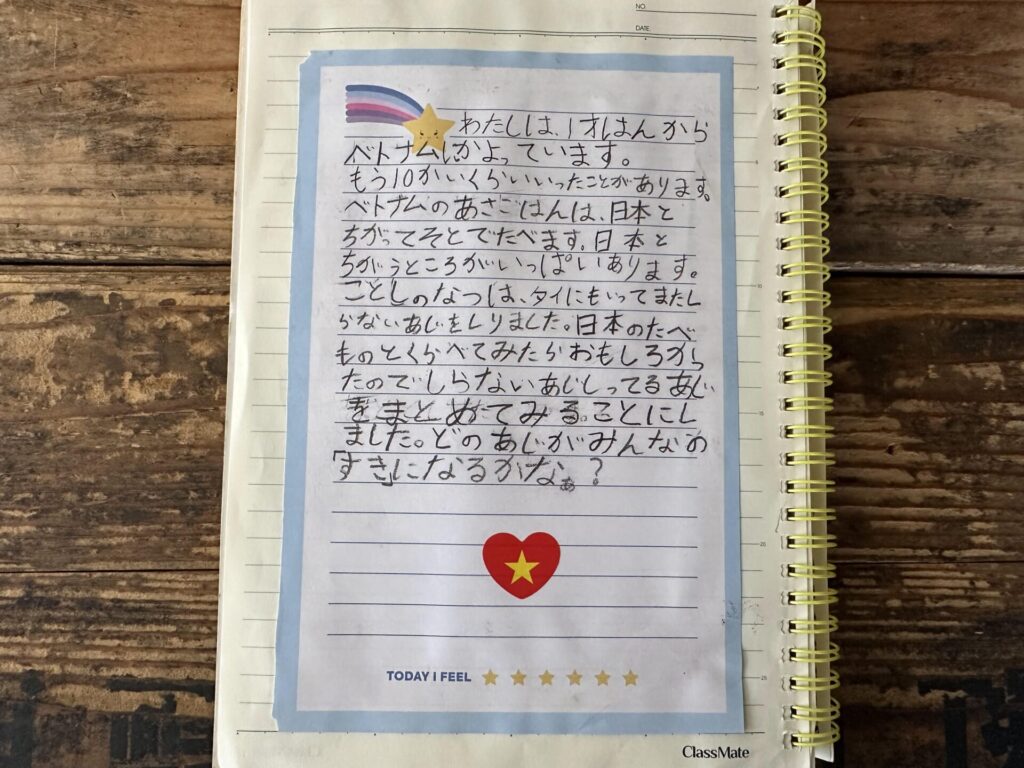 NO.
DATE.
わたしは、1才はんから
ベトナムにかよっています。
もう10かいくらいいったことがあります。
ベトナムのあさごはんは、日本と
ちがってそとでたべます。日本と
ちがうところがいっぱいあります。
ことしのなつは、タイにもいってまたし
らないあじをしりました。日本のたべ
ものとくらべてみたらおもしろかっ
たのでしらないあじしってるあじ
をまとめてみることにし
ました。どのあじがみんなの
「すき」になるかなぁ?
TODAY I FEEL
ClassMate